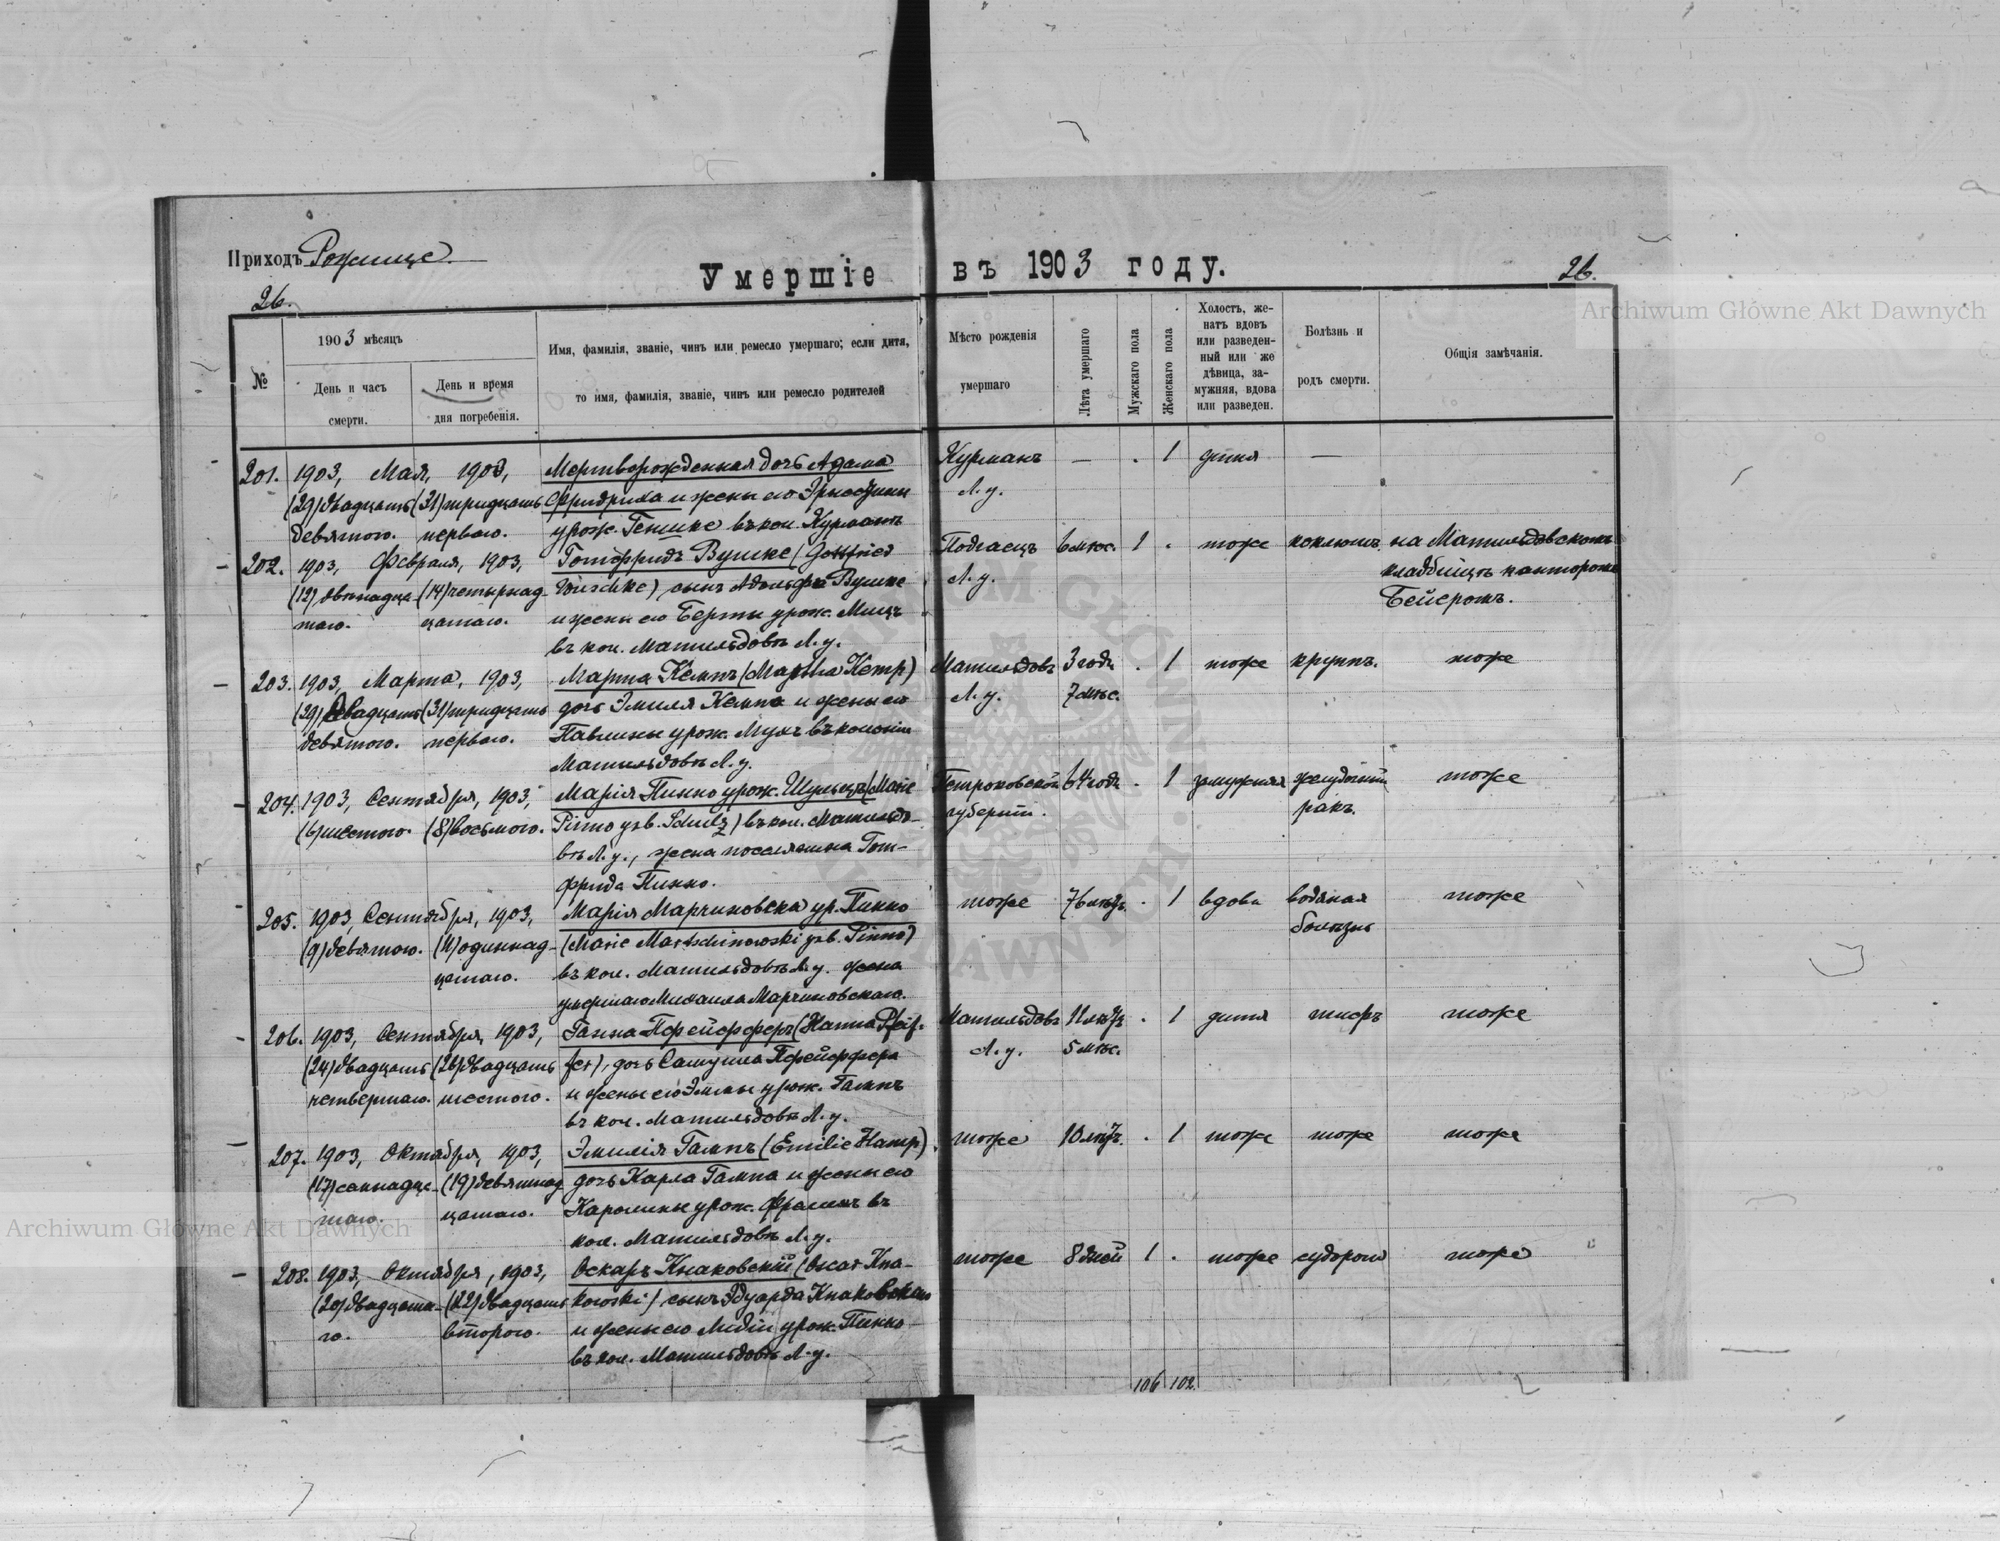 Приходъ Рожище.
Умершіе въ 1903 году.
26. 26.
№
1903 мѣсяцъ
День и часъ смерти.
День и время дня погребенія.
Имя, фамилія, званіе, чинъ или ремесло умершаго; если дитя,
то имя, фамилія, званіе, чинъ или ремесло родителей
Мѣсто рожденія
умершаго
Лѣта умершаго
Мужскаго пола
Женскаго пола
Холостъ, же-
натъ вдовъ
или разведен-
ный или же
дѣвица, за-
мужняя, вдова
или разведен.
Болѣзнь и
родъ смерти.
Общія замѣчанія.
201. 1903, Мая, 1903, Мертворожденная дочь Адама Курманъ — . 1 дитя —
(29) двадцать (31) тридцать Фридриха и жены его Эрнестины Л.у.
девятого. первого. урож. Генике въ кол. Курманъ
202. 1903, Февраля, 1903, Готфридъ Вушке (Gottfried Подгаецъ 6 мѣс. 1 . тоже коклюшъ на Матильдовскомъ
(12) двѣнадца- (14) четырнад- Wuschke) сынъ Адольфа Вушке Л.у. кладбищѣ канторомъ
таго. цатаго. и жены его Берты урож. Мицъ Бейеромъ.
въ кол. Матильдовъ Л.у.
203. 1903, Марта, 1903, Марта Кемпъ (Martha Kemp) Матильдовъ 3 года . 1 тоже крупъ. тоже
(29) двадцать (31) тридцать дочь Эмиля Кемпа и жены его Л.у. 7 мѣс.
девятого. первого. Павлины урож. Мухъ въ колоніи
Матильдовъ Л.у.
204. 1903, Сентября, 1903, Марія Пинно урож. Шульцъ (Marie Петроковской 64 года . 1 замужняя желудочный тоже
(6) шестого. (8) восьмого. Pinno geb. Schulz) въ кол. Матильдо- губерніи. ракъ.
въ Л.у., жена поселянина Гот-
фрида Пинно.
205. 1903, Сентября, 1903, Марія Марчиновска ур. Пинно тоже 76 лѣтъ. . 1 вдова водяная тоже
(9) девятого. (11) одиннад- (Marie Martschinowski geb. Pinno) болѣзнь
цатаго. въ кол. Матильдовъ Л.у. жена
умершаго Михаила Марчиновскаго.
206. 1903, Сентября, 1903, Ганна Пфейфферъ (Hanna Pfeif- Матильдовъ 11 лѣтъ . 1 дитя тифъ тоже
(24) двадцать (26) двадцать fer), дочь Самуила Пфейффера Л.у. 5 мѣс.
четвертаго. шестого. и жены его Эммы урож. Гампъ
въ кол. Матильдовъ Л.у.
207. 1903, Октября, 1903, Эмилія Гампъ (Emilie Hamp) тоже 10 лѣтъ. . 1 тоже тоже тоже
(17) семнадца- (19) девятнад- дочь Карла Гампа и жены его
таго. цатаго. Каролины урож. въ
кол. Матильдовъ Л.у.
208. 1903, Октября, 1903, Оскаръ Кнаковскій (Oscar Kna- тоже 8 дней 1 . тоже судороги тоже
(20) двадцата- (22) двадцать kowski) сынъ Эдуарда Кнаковскаго
го. второго. и жены его Лидіи урож. Пинно
въ кол. Матильдовъ Л.у.
106 102.
Archiwum Główne Akt Dawnych
Archiwum Główne Akt Dawnych